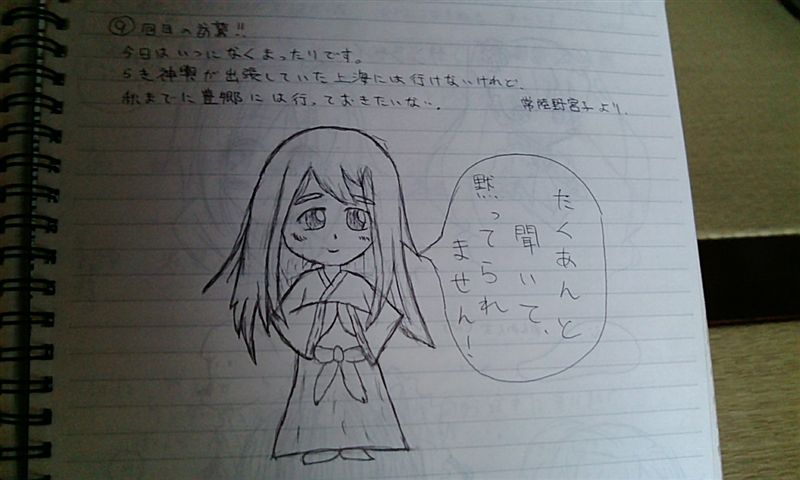 ⑨回目の訪葉!!
今日はいつになくまったりです。
らき神輿が出張していた上海には行けないけれど、
秋までに豊郷には行っておきたいな…。 常陸野宮子より.
たくあんと
聞いて、
黙ってられ
ません!